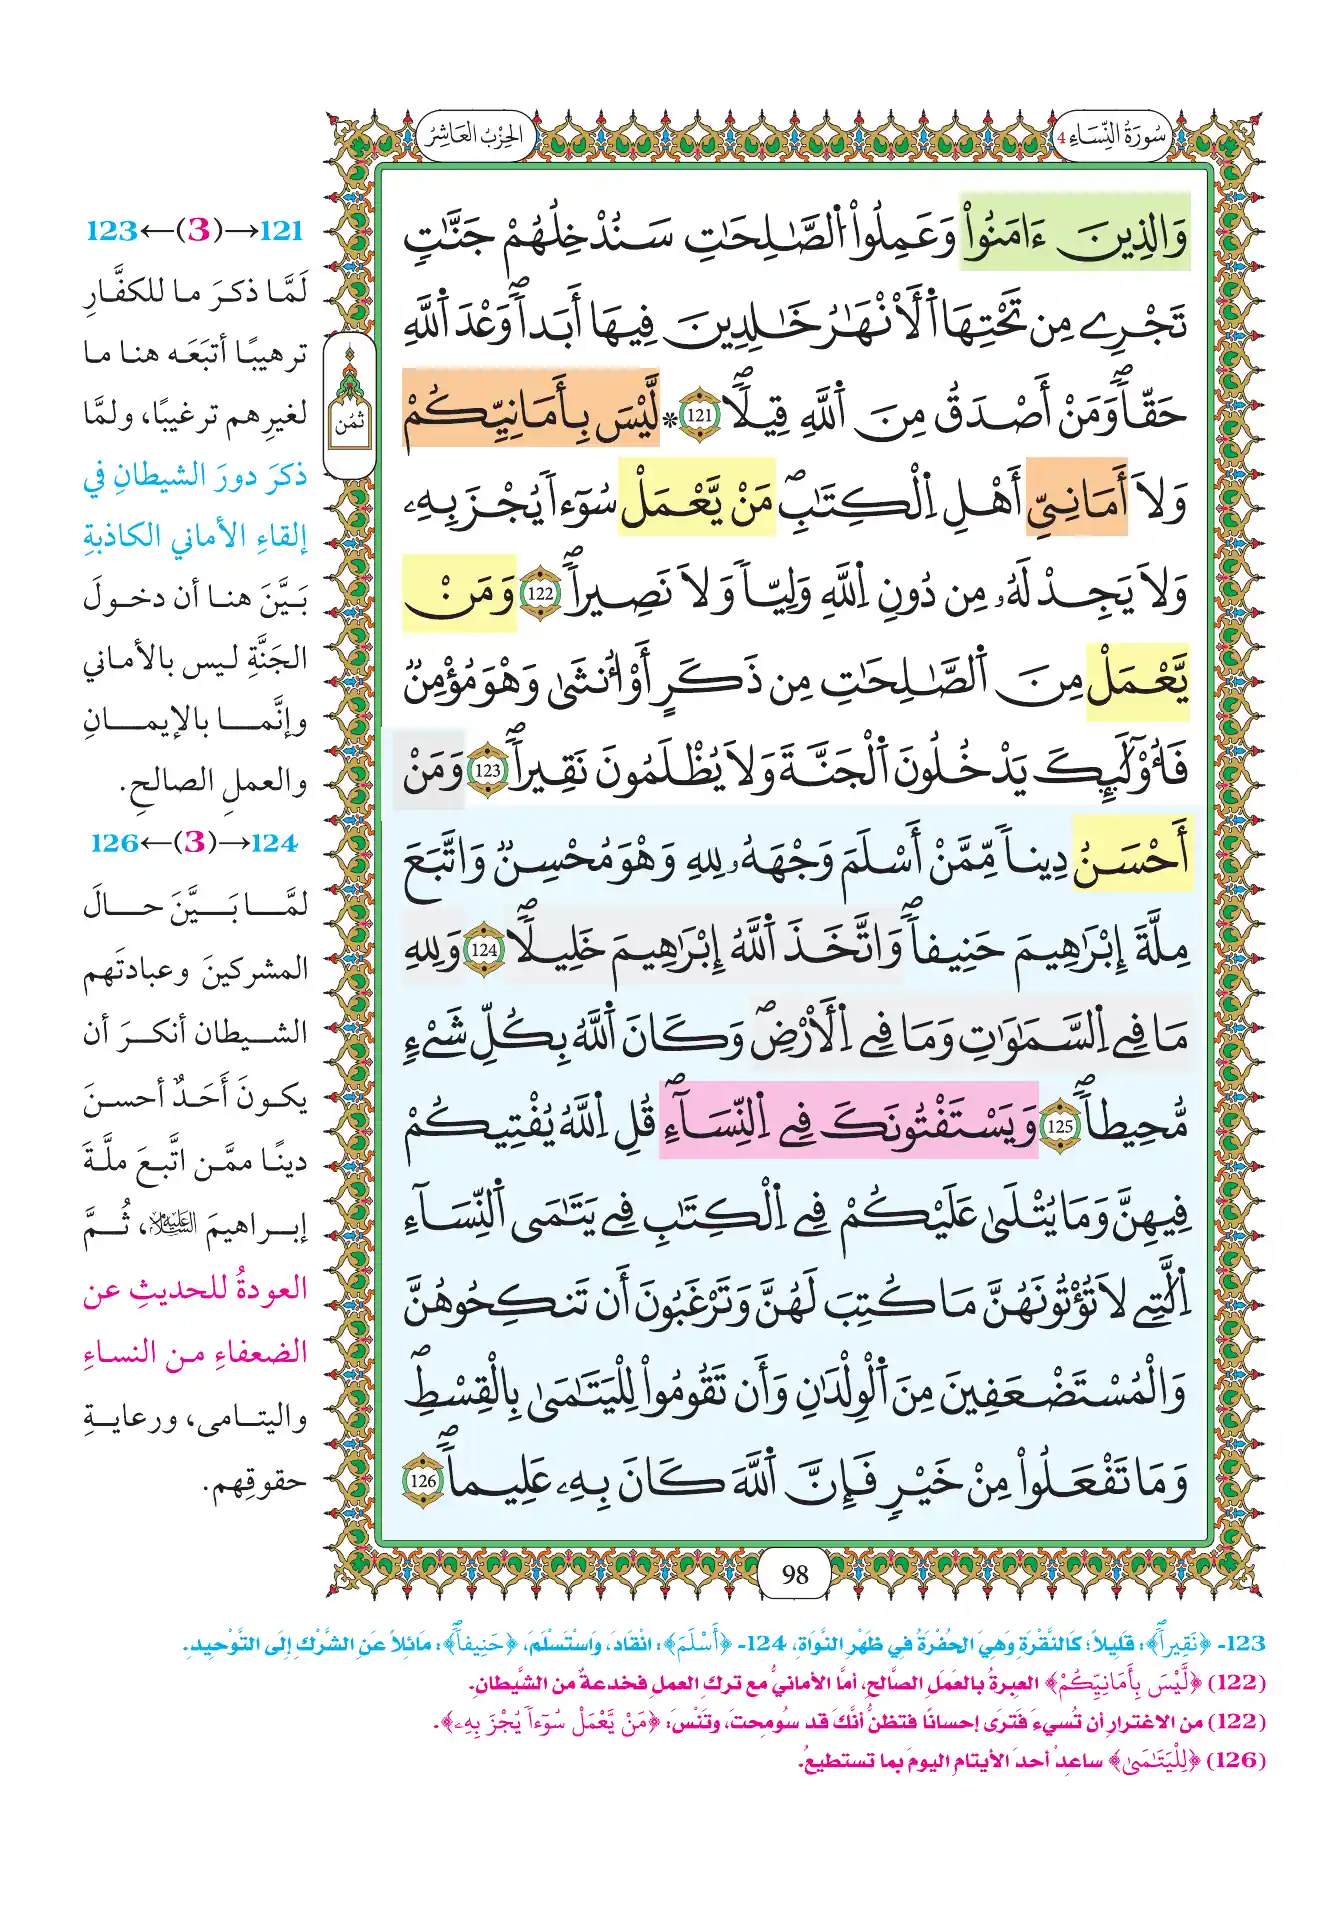 سُورَةُ النِّسَاءِ 4
الحِزْبُ العَاشِرُ
وَالذِينَ ءَامَنُواْ وَعَمِلُواْ اُلصَّٰلِحَٰتِ سَنُدْخِلُهُمْ جَنَّٰتٖ
تَجْرِے مِن تَحْتِهَا اَ۬لَانْهَٰرُ خَٰلِدِينَ فِيهَا أَبَداٗۖ وَعْدَ اَ۬للَّهِ
حَقّاٗۖ وَمَنْ أَصْدَقُ مِنَ اَ۬للَّهِ قِيلاٗۖ 121 * لَّيْسَ بِأَمَانِيِّكُمْ
وَلَا أَمَانِيِّ أَهْلِ اِ۬لْكِتَٰبِۖ مَنْ يَّعْمَلْ سُوٓءاٗ يُجْزَ بِهِۦ
وَلَا يَجِدْ لَهُۥ مِن دُونِ اِ۬للَّهِ وَلِيّاٗ وَلَا نَصِيراٗۖ 122 وَمَنْ
يَّعْمَلْ مِنَ اَ۬لصَّٰلِحَٰتِ مِن ذَكَرٍ اَوُ ا۟نثَىٰ وَهْوَ مُؤْمِنٞ
فَأُوْلَٰٓئِكَ يَدْخُلُونَ اَ۬لْجَنَّةَ وَلَا يُظْلَمُونَ نَقِيراٗۖ 123 وَمَنْ
أَحْسَنُ دِيناٗ مِّمَّنْ أَسْلَمَ وَجْهَهُۥ لِلهِ وَهْوَ مُحْسِنٞ وَاتَّبَعَ
مِلَّةَ إِبْرَٰهِيمَ حَنِيفاٗۖ وَاتَّخَذَ اَ۬للَّهُ إِبْرَٰهِيمَ خَلِيلاٗۖ 124 وَلِلهِ
مَا فِے اِ۬لسَّمَٰوَٰتِ وَمَا فِے اِ۬لَارْضِۖ وَكَانَ اَ۬للَّهُ بِكُلِّ شَےْءٖ
مُّحِيطاٗۖ 125 وَيَسْتَفْتُونَكَ فِے اِ۬لنِّسَآءِۖ قُلِ اِ۬للَّهُ يُفْتِيكُمْ
فِيهِنَّ وَمَا يُتْلَىٰ عَلَيْكُمْ فِے اِ۬لْكِتَٰبِ فِے يَتَٰمَى اَ۬لنِّسَآءِ
اِ۬لَّٰتِے لَا تُؤْتُونَهُنَّ مَا كُتِبَ لَهُنَّ وَتَرْغَبُونَ أَن تَنكِحُوهُنَّ
وَالْمُسْتَضْعَفِينَ مِنَ اَ۬لْوِلْدَٰنِ وَأَن تَقُومُواْ لِلْيَتَٰمَىٰ بِالْقِسْطِۖ
وَمَا تَفْعَلُواْ مِنْ خَيْرٖ فَإِنَّ اَ۬للَّهَ كَانَ بِهِۦ عَلِيماٗۖ 126
ثمُن
98
121→(3)←123
لَمَّا ذكرَ ما للكفَّارِ
ترهيبًا أتبَعَه هنا ما
لغيرِهم ترغيبًا، ولمَّا
ذكرَ دورَ الشيطانِ في
إلقاءِ الأماني الكاذبةِ
بَيَّنَ هنا أن دخولَ
الجَنَّةِ ليس بالأماني
وإنَّما بالإيمانِ
والعملِ الصالحِ.
124→(3)←126
لمَّا بَيَّنَ حالَ
المشركينَ وعبادتَهم
الشيطان أنكرَ أن
يكونَ أَحَدٌ أحسنَ
دينًا ممَّن اتَّبعَ ملَّةَ
إبراهيمَ عليه السلام، ثُمَّ
العودةُ للحديثِ عن
الضعفاءِ من النساءِ
واليتامى، ورعايةِ
حقوقِهم.
123- ﴿نَقِيراٗۖ﴾: قَلِيلاً؛ كَالنُّقْرَةِ وَهِيَ الحُفْرَةُ فِي ظَهْرِ النَّوَاةِ، 124- ﴿أَسْلَمَ﴾: انْقَادَ، وَاسْتَسْلَمَ، ﴿حَنِيفاٗۖ﴾: مَائِلاً عَنِ الشِّرْكِ إِلَى التَّوْحِيدِ.
(122) ﴿لَّيْسَ بِأَمَانِيِّكُمْ﴾ العِبرةُ بالعَمَلِ الصَّالحِ، أمَّا الأمانيُّ مع تركِ العملِ فخدعةٌ من الشَّيطانِ.
(122) من الاغترارِ أن تُسيءَ فَتَرَى إحسانًا فتظنُّ أنَّكَ قد سُومِحتَ، وتَنْسَ: ﴿مَنْ يَّعْمَلْ سُوٓءاٗ يُجْزَ بِهِۦ﴾.
(126) ﴿لِلْيَتَٰمَىٰ﴾ ساعِدْ أحدَ الأيتامِ اليومَ بما تستطيعُ.